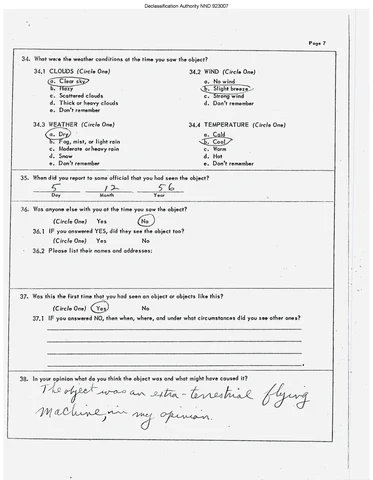 Declassification Authority NND 923007
Page 7
34. What were the weather conditions at the time you saw the object?
34.1 CLOUDS (Circle One)
a. Clear sky
b. Hazy
c. Scattered clouds
d. Thick or heavy clouds
e. Don't remember
34.2 WIND (Circle One)
a. No wind
b. Slight breeze
c. Strong wind
d. Don't remember
34.3 WEATHER (Circle One)
a. Dry
b. Fog, mist, or light rain
c. Moderate or heavy rain
d. Snow
e. Don't remember
34.4 TEMPERATURE (Circle One)
a. Cold
b. Cool
c. Warm
d. Hot
e. Don't remember
35. When did you report to some official that you had seen the object?
5 12 56
Day Month Year
36. Was anyone else with you at the time you saw the object?
(Circle One) Yes No
36.1 IF you answered YES, did they see the object too?
(Circle One) Yes No
36.2 Please list their names and addresses:
37. Was this the first time that you had seen an object or objects like this?
(Circle One) Yes No
37.1 IF you answered NO, then when, where, and under what circumstances did you see other ones?
38. In your opinion what do you think the object was and what might have caused it?
The object was an extra-terrestrial flying
machine, in my opinion.